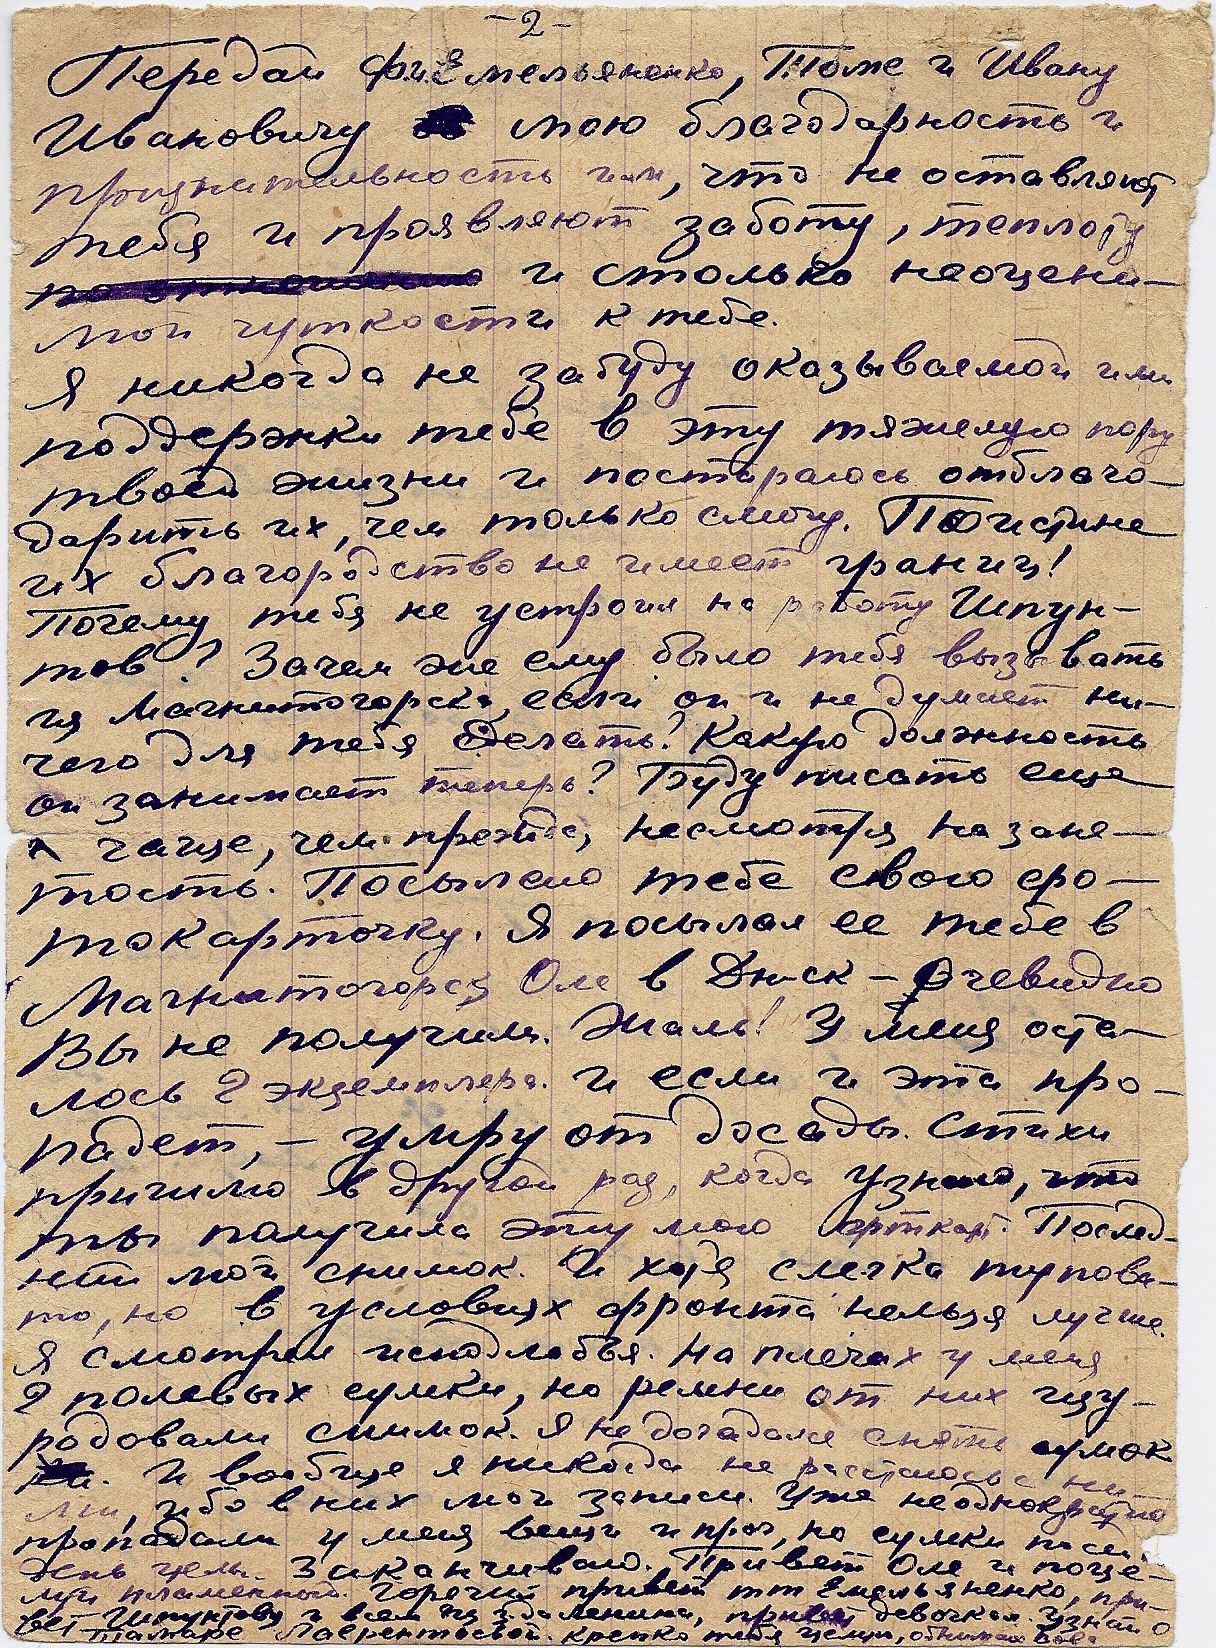 -2-
Передай Ф.И. Емельяненко, Томе и Ивану
Ивановичу мою благодарность и
признательность им, что не оставляют
тебя и проявляют заботу, теплоту
и столько неоцени-
мой чуткости к тебе.
Я никогда не забуду оказываемой ими
поддержки тебе в эту тяжелую пору
твоей жизни и постараюсь отблаго-
дарить их, чем только смогу. Поистине
их благородство не имеет границ!
Почему тебя не устроил на работу Шпун-
тов? Зачем же ему было тебя вызывать
из Магнитогорска, если он и не думает ни-
чего для тебя делать? Какую должность
он занимает теперь? Буду писать еще
чаще, чем прежде, несмотря на заня-
тость. Посылаю тебе свою фо-
токарточку. Я посылал ее тебе в
Магнитогорск, Оле в Дн-ск - Очевидно
Вы не получили. Жаль! У меня оста-
лось 2 экземпляра. и если и эта про-
падет, - умру от досады. Стихи
пришлю в другой раз, когда узнаю, что
ты получила эту мою Послед-
ний мой снимок. И хотя слегка мупова-
то, но в условиях фронта нельзя лучше.
Я смотрел исподлобья. На плечах у меня
2 полевых сумки, но ремни от них изу-
родовали снимок. Я не догадался снять сумок
И вообще я никогда не расстаюсь с ни-
ми, ибо в них мои записи. Уже неоднократно
пропадали у меня вещи и проч, но сумки по сей
день целы. Заканчиваю. Привет Оле и поце-
луй пламенный. Горячий привет тт Емельяненко, при-
вет Шпунтову и всем из з-да Ленина, привет девочкам. Узнай о
Тамаре Лаврентьевой. Крепко тебя целую, обнимаю Вова